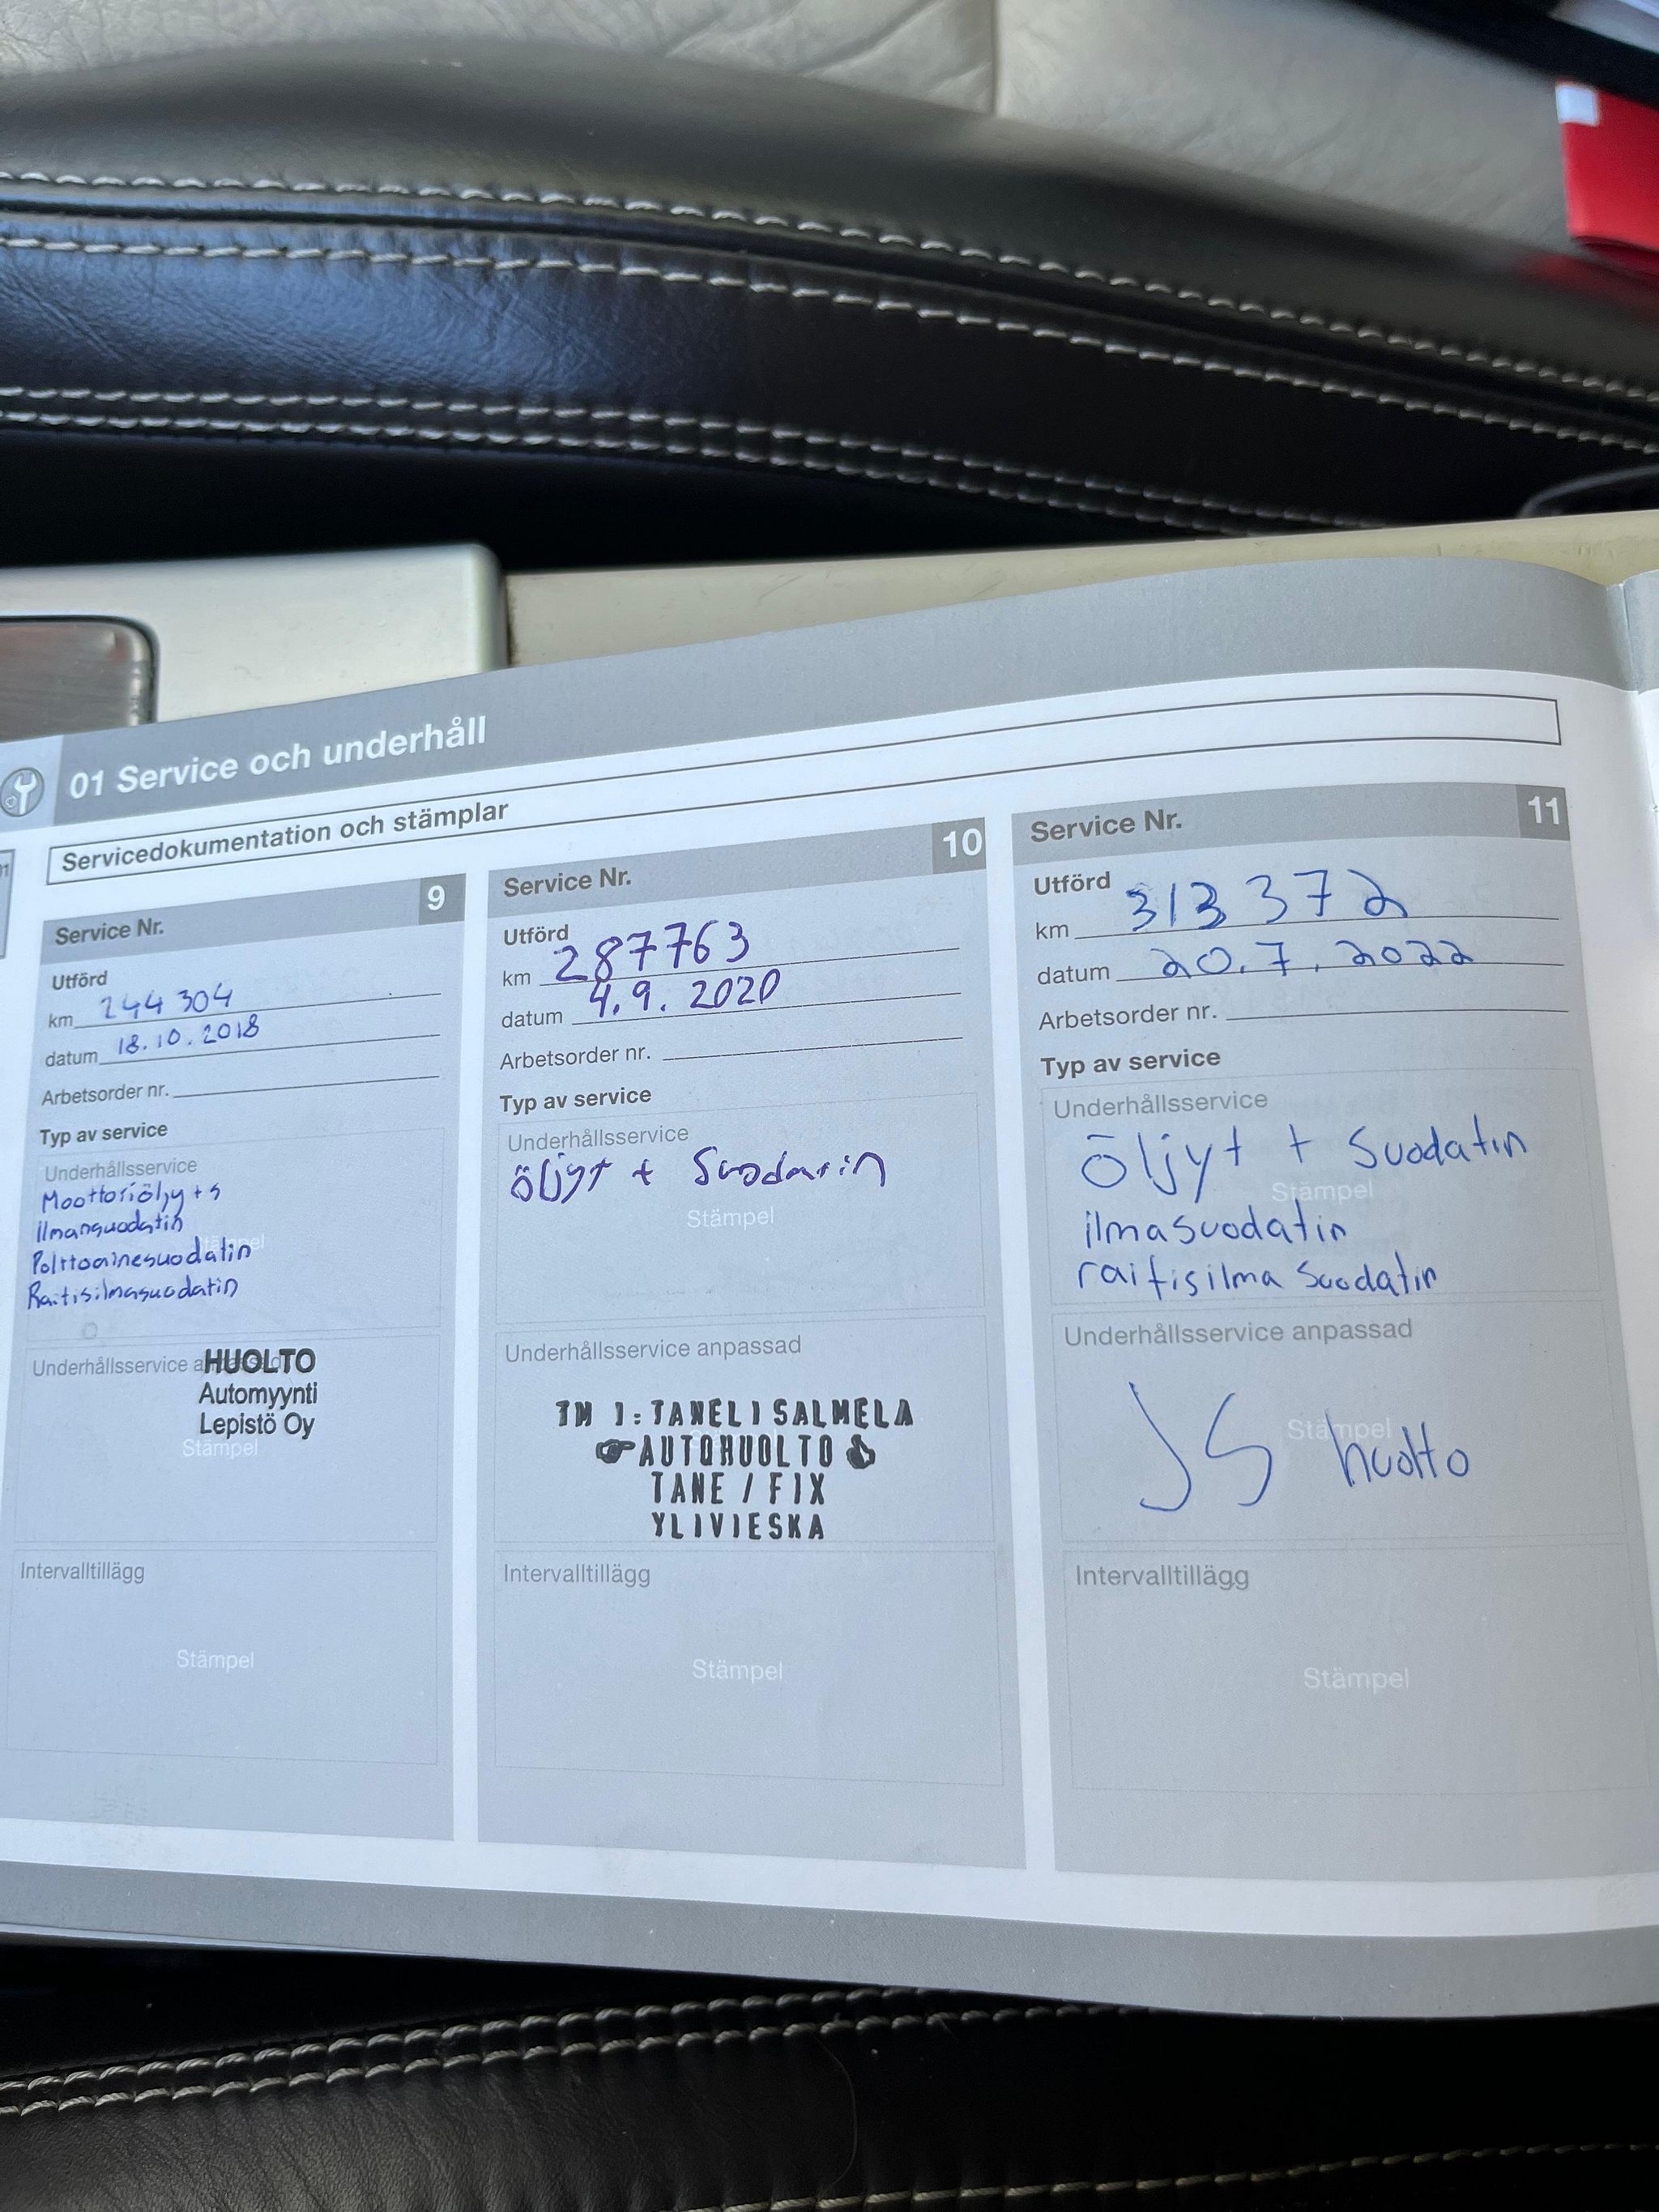 01 Service och underhåll
Servicedokumentation och stämplar
Service Nr. 9
Utförd
km 244 304
datum 18.10.2018
Arbetsorder nr.
Typ av service
Underhållsservice
Moottoriöljy + s
ilmansuodatin
Stämpel
Polttoainesuodatin
Raitisilmasuodatin
Underhållsservice anpassad
HUOLTO
Automyynti
Lepistö Oy
Stämpel
Intervalltillägg
Stämpel
Service Nr. 10
Utförd
km 287763
datum 4.9.2020
Arbetsorder nr.
Typ av service
Underhållsservice
öljyt + Suodatin
Stämpel
Underhållsservice anpassad
TM I: TANELI SALMELA
AUTOHUOLTO
TANE / FIX
YLIVIESKA
Intervalltillägg
Stämpel
Service Nr. 11
Utförd
km 313 372
datum 20.7.2022
Arbetsorder nr.
Typ av service
Underhållsservice
öljyt + Suodatin
Stämpel
ilmasuodatin
raitisilma Suodatin
Underhållsservice anpassad
Stämpel
JS huolto
Intervalltillägg
Stämpel